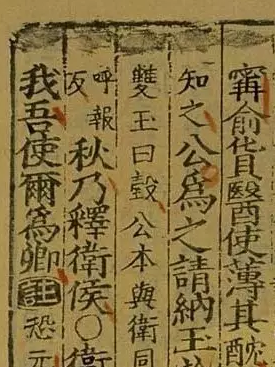 甯俞貨醫使薄其酖
知之公爲之請納玉於
雙玉曰瑴公本與衛同
呼報
反
秋乃釋衛侯○衛
我吾使爾爲卿注恐元